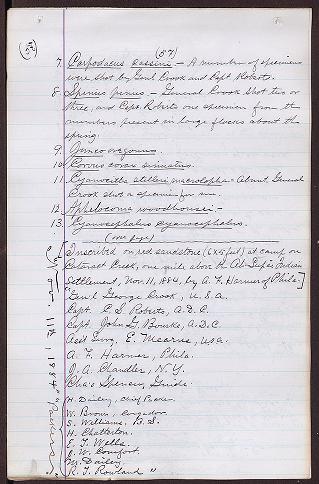 (57)
7. Carpodacus cassini – A number of specimens
were shot by Genl Crook and Capt. Roberts.
8. Spinus pinus – General Crook shot two or
three, and Capt. Roberts one specimen from the
numbers present in large flocks about the
spring.
9. Junco oregonus.
10. Corvus corax sinuatus.
11. Cyanocitta stelleri macrolopha – Abunt. General
Crook shot a specimen for me.
12. Aphelocoma woodhousei –
13. Cyanocephalus cyanocephalus.
(over page)
Inscribed on red sandstone (6x5 feet) at camp on
Cataract Creek, one mile above the Indian
Settlement, Nov. 11, 1884, by A. F. Harmer of Phila.
"Genl George Crook, U.S.A.
Capt. C. S. Roberts, A.D.C.
Capt. John G. Bourke, A.D.C.
Asst Surg. E. Mearns, USA.
A. F. Harmer, Phila.
J. A. Chandler, N.Y.
Chas Spencer, Guide.
H. Dailey, Chief Packer.
W. Brown,
S. Williams, B.S.
H. Chatterton.
E. F. Wells.
J. W. Comfort.
M. Dailey.
R. T. Rowland "
Nov. 11th 1884